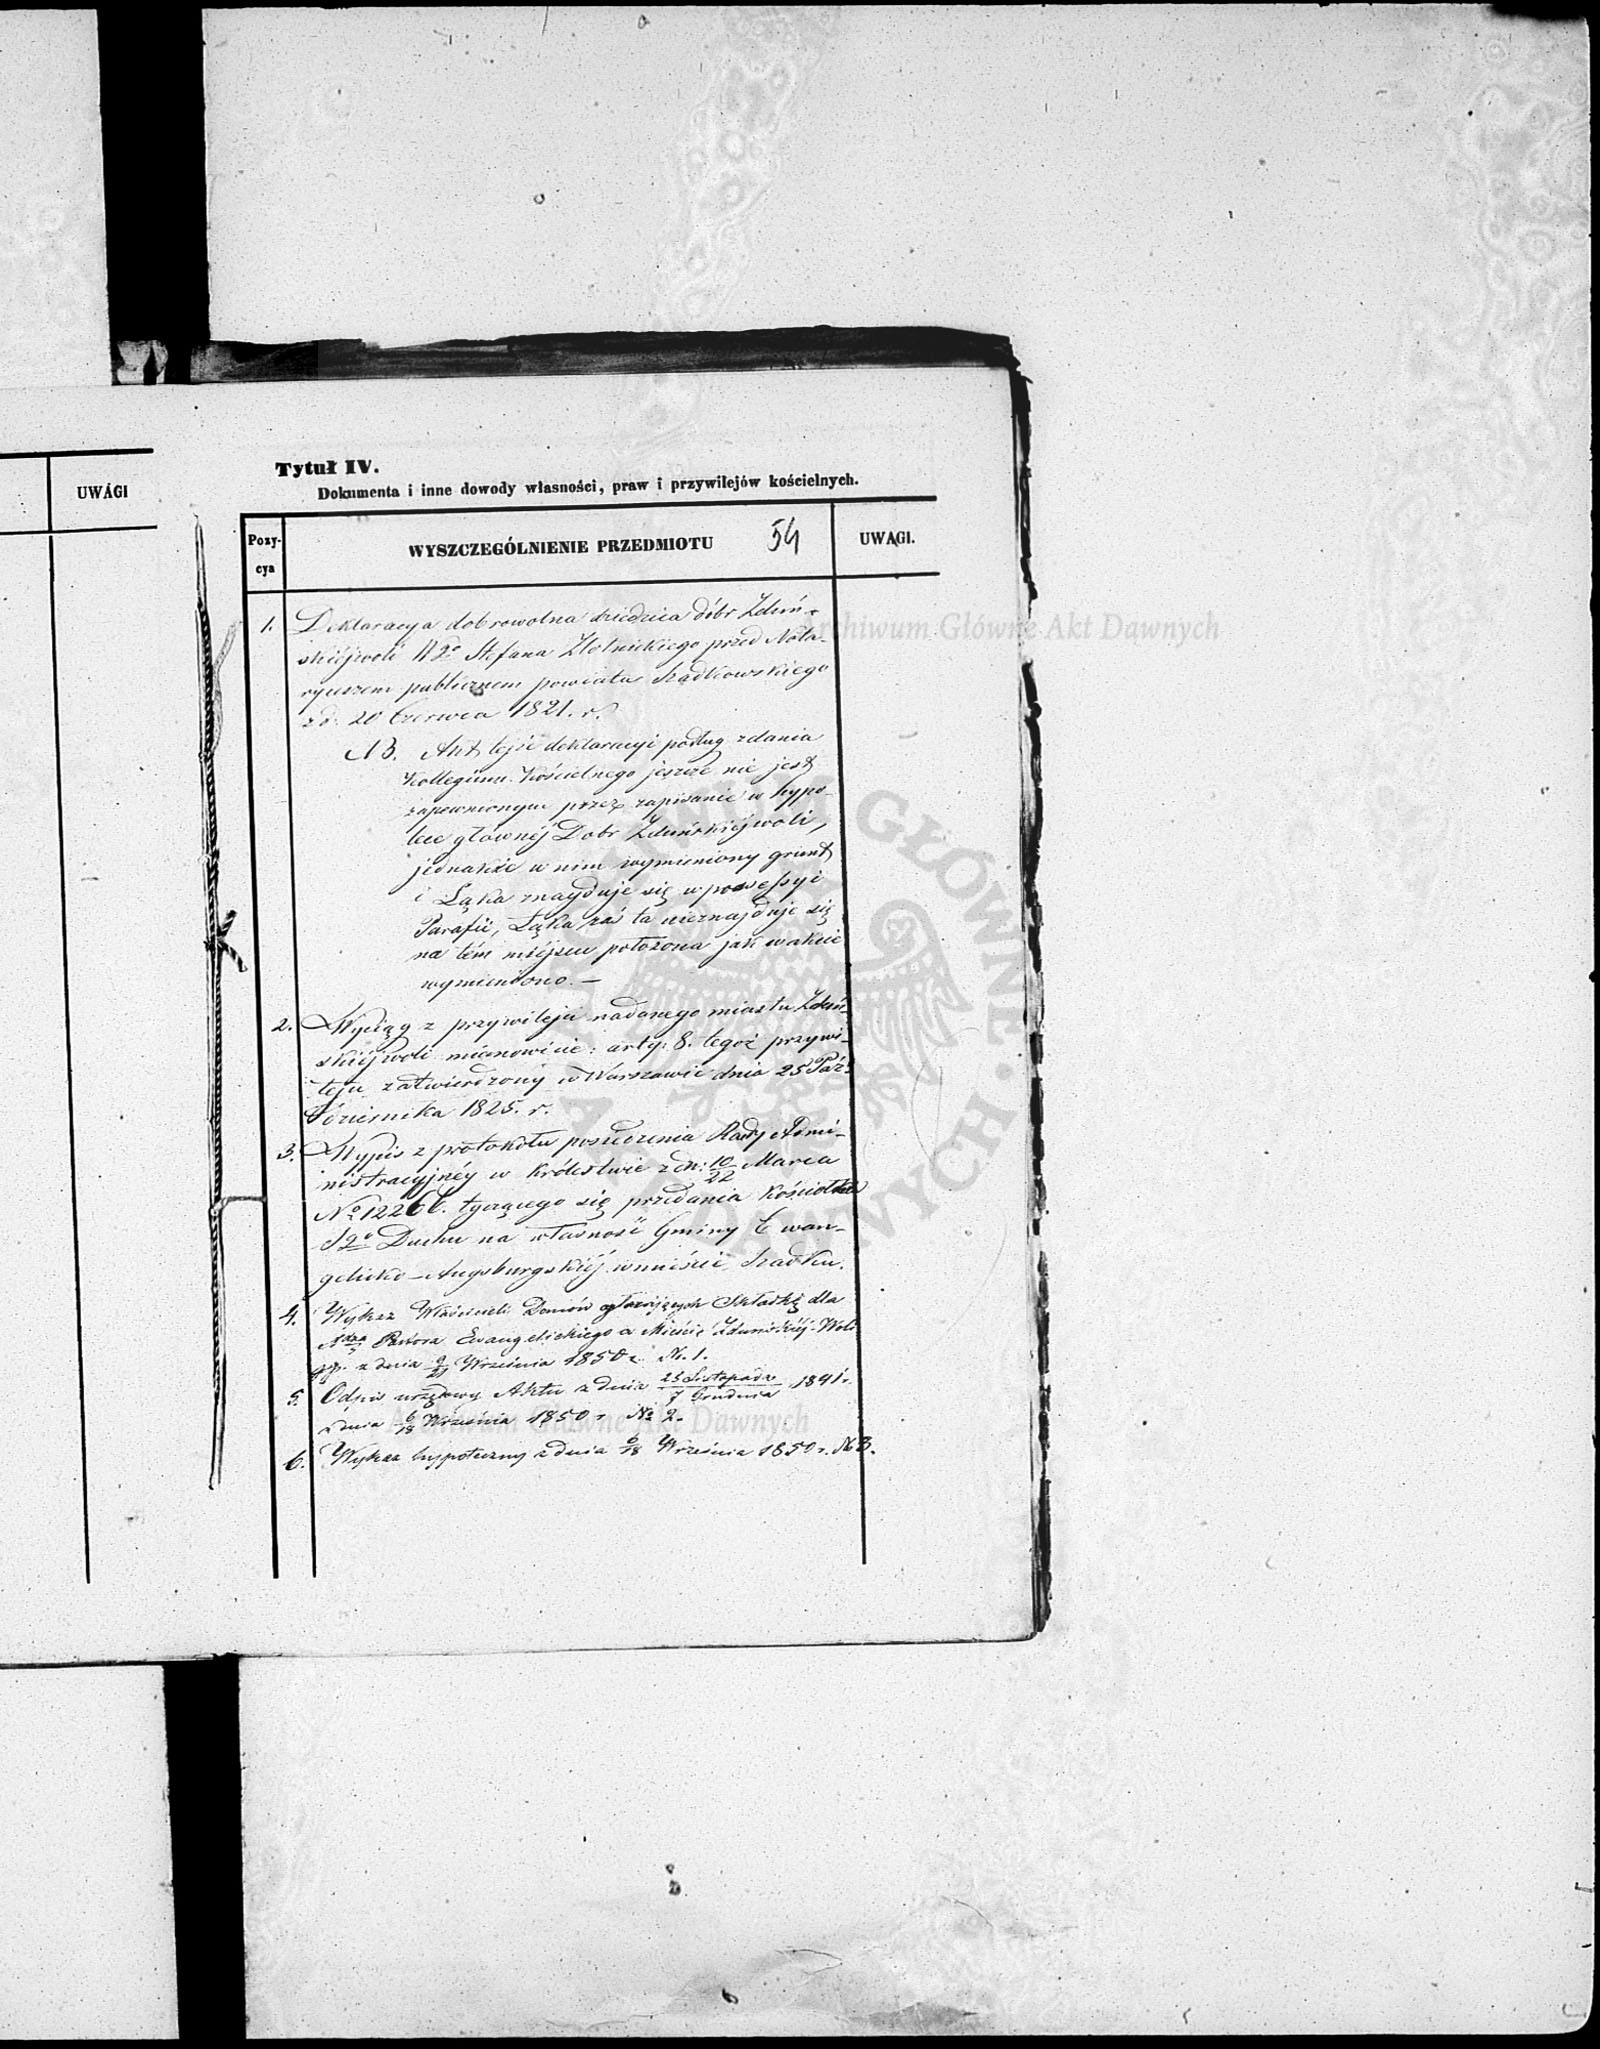 UWAGI
Tytuł IV.
Dokumenta i inne dowody własności, praw i przywilejów kościelnych.
Pozy-
cya
WYSZCZEGÓLNIENIE PRZEDMIOTU
54
UWAGI.
1. Deklaracya dobrowolna dziedzica dóbr Zduń-
skiéjwoli Wgo Stefana Złotnickiego przed Nota-
ryuszem publicznem powiatu Szadkowskiego
z d. 20 Czerwca 1821. r.
NB. Akt tejże deklaracyi podług zdania
Kollegium Kościelnego jeszcze nie jest
zapewnionym przez zapisanie w hypo-
tece głównéj Dobr Zduńskiéjwoli,
jednakże w nim wymieniony grunt
i Łąka znayduje się w possessyi
Parafii, Łąka zaś ta nieznajduje się
na tém miejscu położona jak w akcie
wymieniono. —
2. Wyciąg z przywileju nadanego miastu Zduń-
skiéjwoli mianowicie: arty: 8. tegoż przywi-
leju zatwierdzony w Warszawie dnia 25 Paź-
dziernika 1825. r.
3. Wypis z protokółu posiedzenia Rady Admi-
nistracyjnéy w Królestwie z dn: 10/22 Marca
No 12266. tyczącego się przedania Kościołka
Sgo Duchu na własność Gminy Ewan-
gelicko-Augsburgskiéj w mieście Szadku.
4. Wykaz Właścicieli Domów Składkę dla
Pastora Ewangelickiego w Mieście Zduńskiéj-Woli
z dnia 9/21 Września 1850 r. No. 1.
5. Odpis urzędowy Aktu z dnia 25 Listopada/7 Grudnia 1841 r.
z dnia 6/18 Września 1850 r No 2.
6. Wykaz hypoteczny z dnia 6/18 Września 1850 r. No 3.
Archiwum Główne Akt Dawnych
Archiwum Główne Akt Dawnych
ARCHIWUM GŁÓWNE AKT DAWNYCH